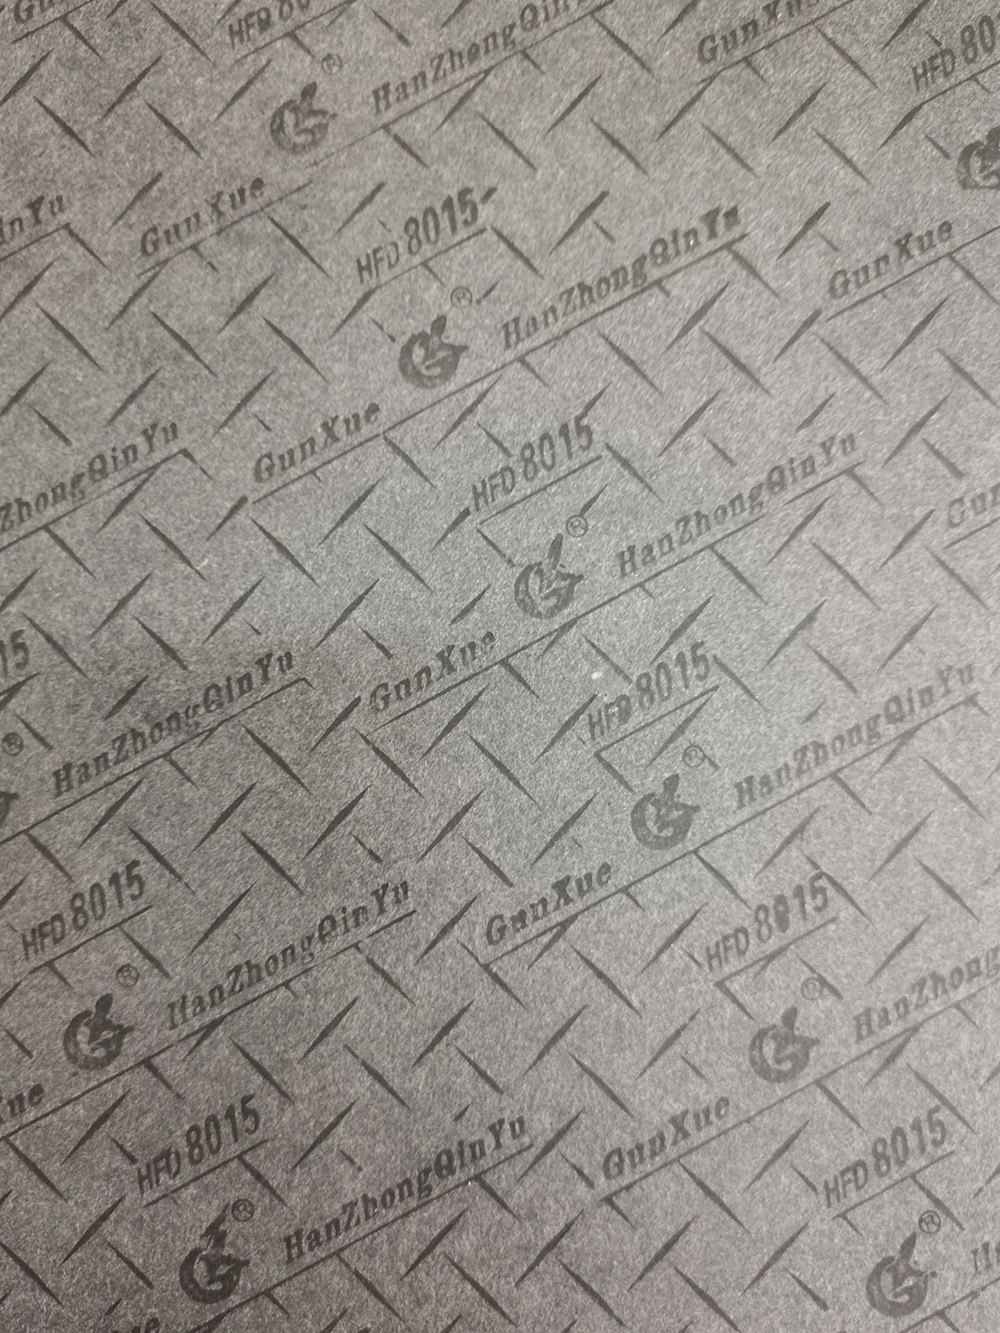 HFD 80
HanZhongQin
GunXue
HFD 80
®
inYu
GunXue
HFD 8015
®
HanZhongQinYu
GunXue
ZhongQinYu
GunXue
HFD 8015
®
HanZhongQinYu
Gun
15
®
HanZhongQinYu
GunXue
HFD 8015
®
HanZhongQinYu
HFD 8015
®
HanZhongQinYu
GunXue
HFD 8015
®
HanZhong
Xue
HFD 8015
®
HanZhongQinYu
GunXue
HFD 8015
®